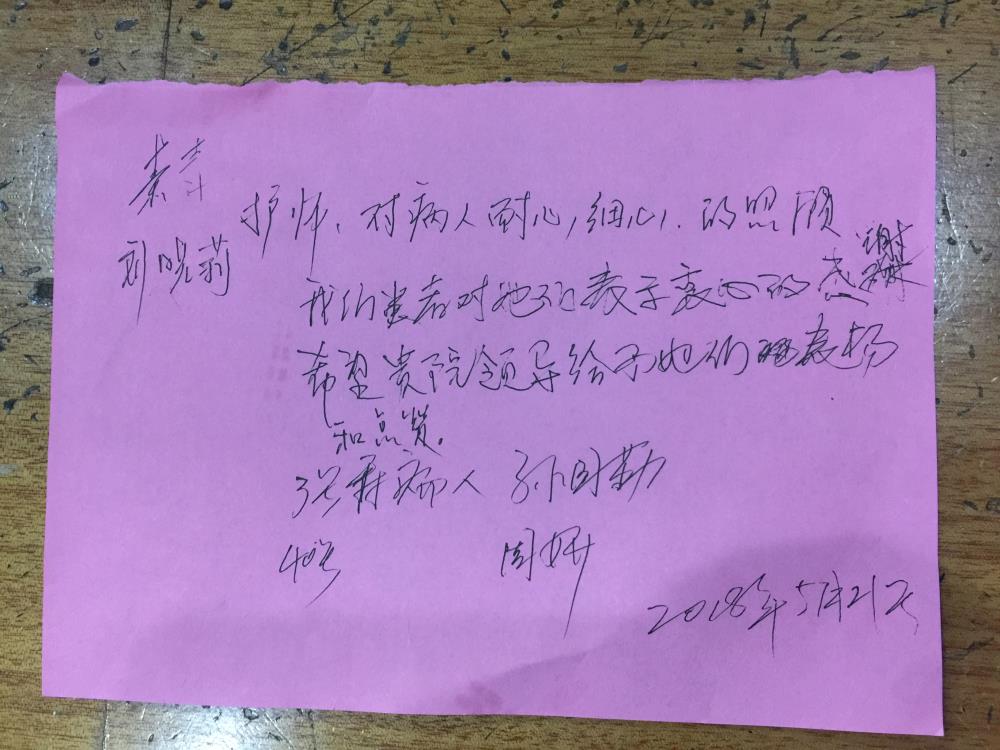 刘晓莉
护师，对病人耐心，细心，的照顾
我们患者对她们表示衷心的感谢
希望贵院领导给予她们表扬
和点赞。
病人 孙国勤
周妍
2018年5月21号